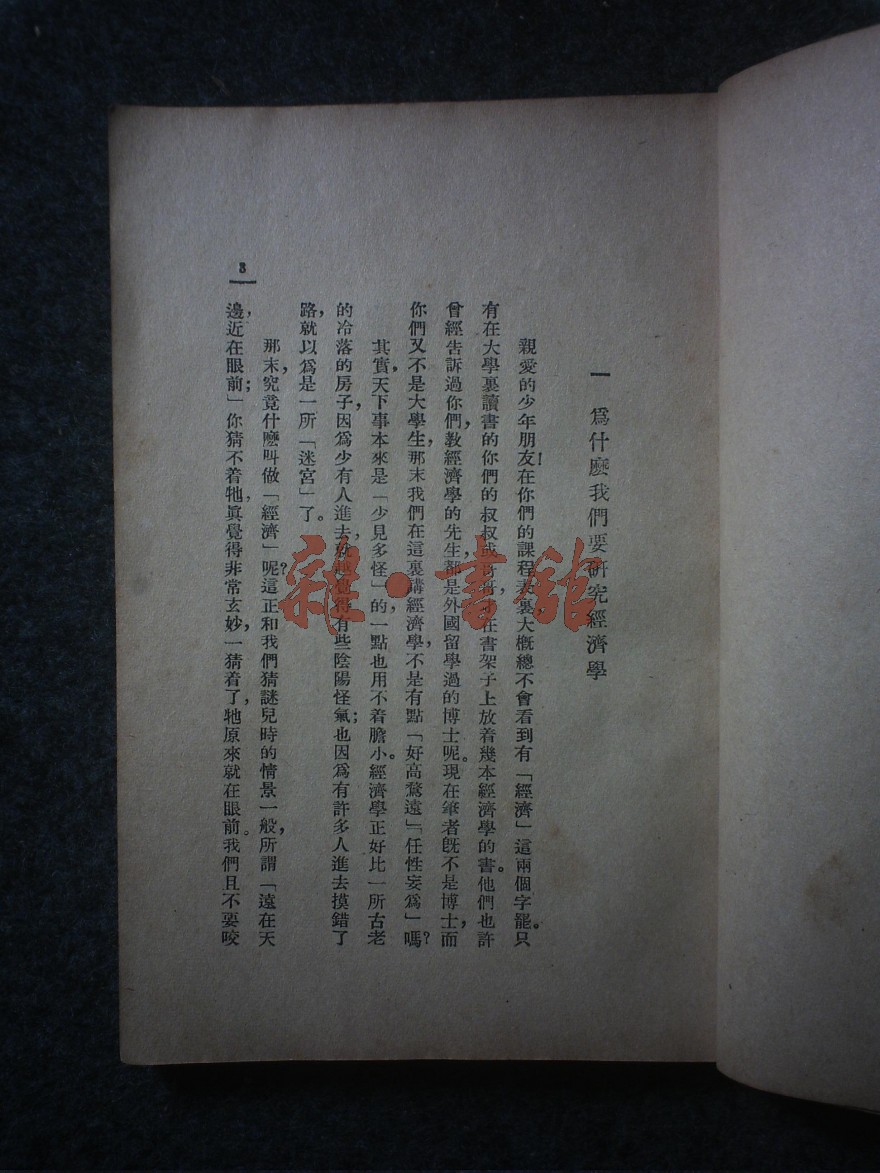 一　爲什麽我們要研究經濟學
親愛的少年朋友！在你們的課程表裏大槪總不會看到有「經濟」這兩個字罷。只
有在大學裏讀書的你們的叔叔或哥哥，在書架子上放着幾本經濟學的書。他們也許
曾經告訴過你們，教經濟學的先生，都是外國留學過的博士呢。現在筆者旣不是博士，而
你們又不是大學生，那末我們在這裏講經濟學，不是有點「好高騖遠」「任性妄爲」嗎？
其實，天下事本來是「少見多怪」的，一點也用不着膽小。經濟學正好比一所古老
的冷落的房子，因爲少有人進去，就越覺得有些陰陽怪氣；也因爲有許多人進去摸錯了
路，就以爲是一所「迷宮」了。
那末，究竟什麽叫做「經濟」呢？這正和我們猜謎兒時的情景一般，所謂「遠在天
邊，近在眼前；」你猜不着牠，眞覺得非常玄妙，一猜着了，牠原來就在眼前。我們且不要咬
3
雜·書館